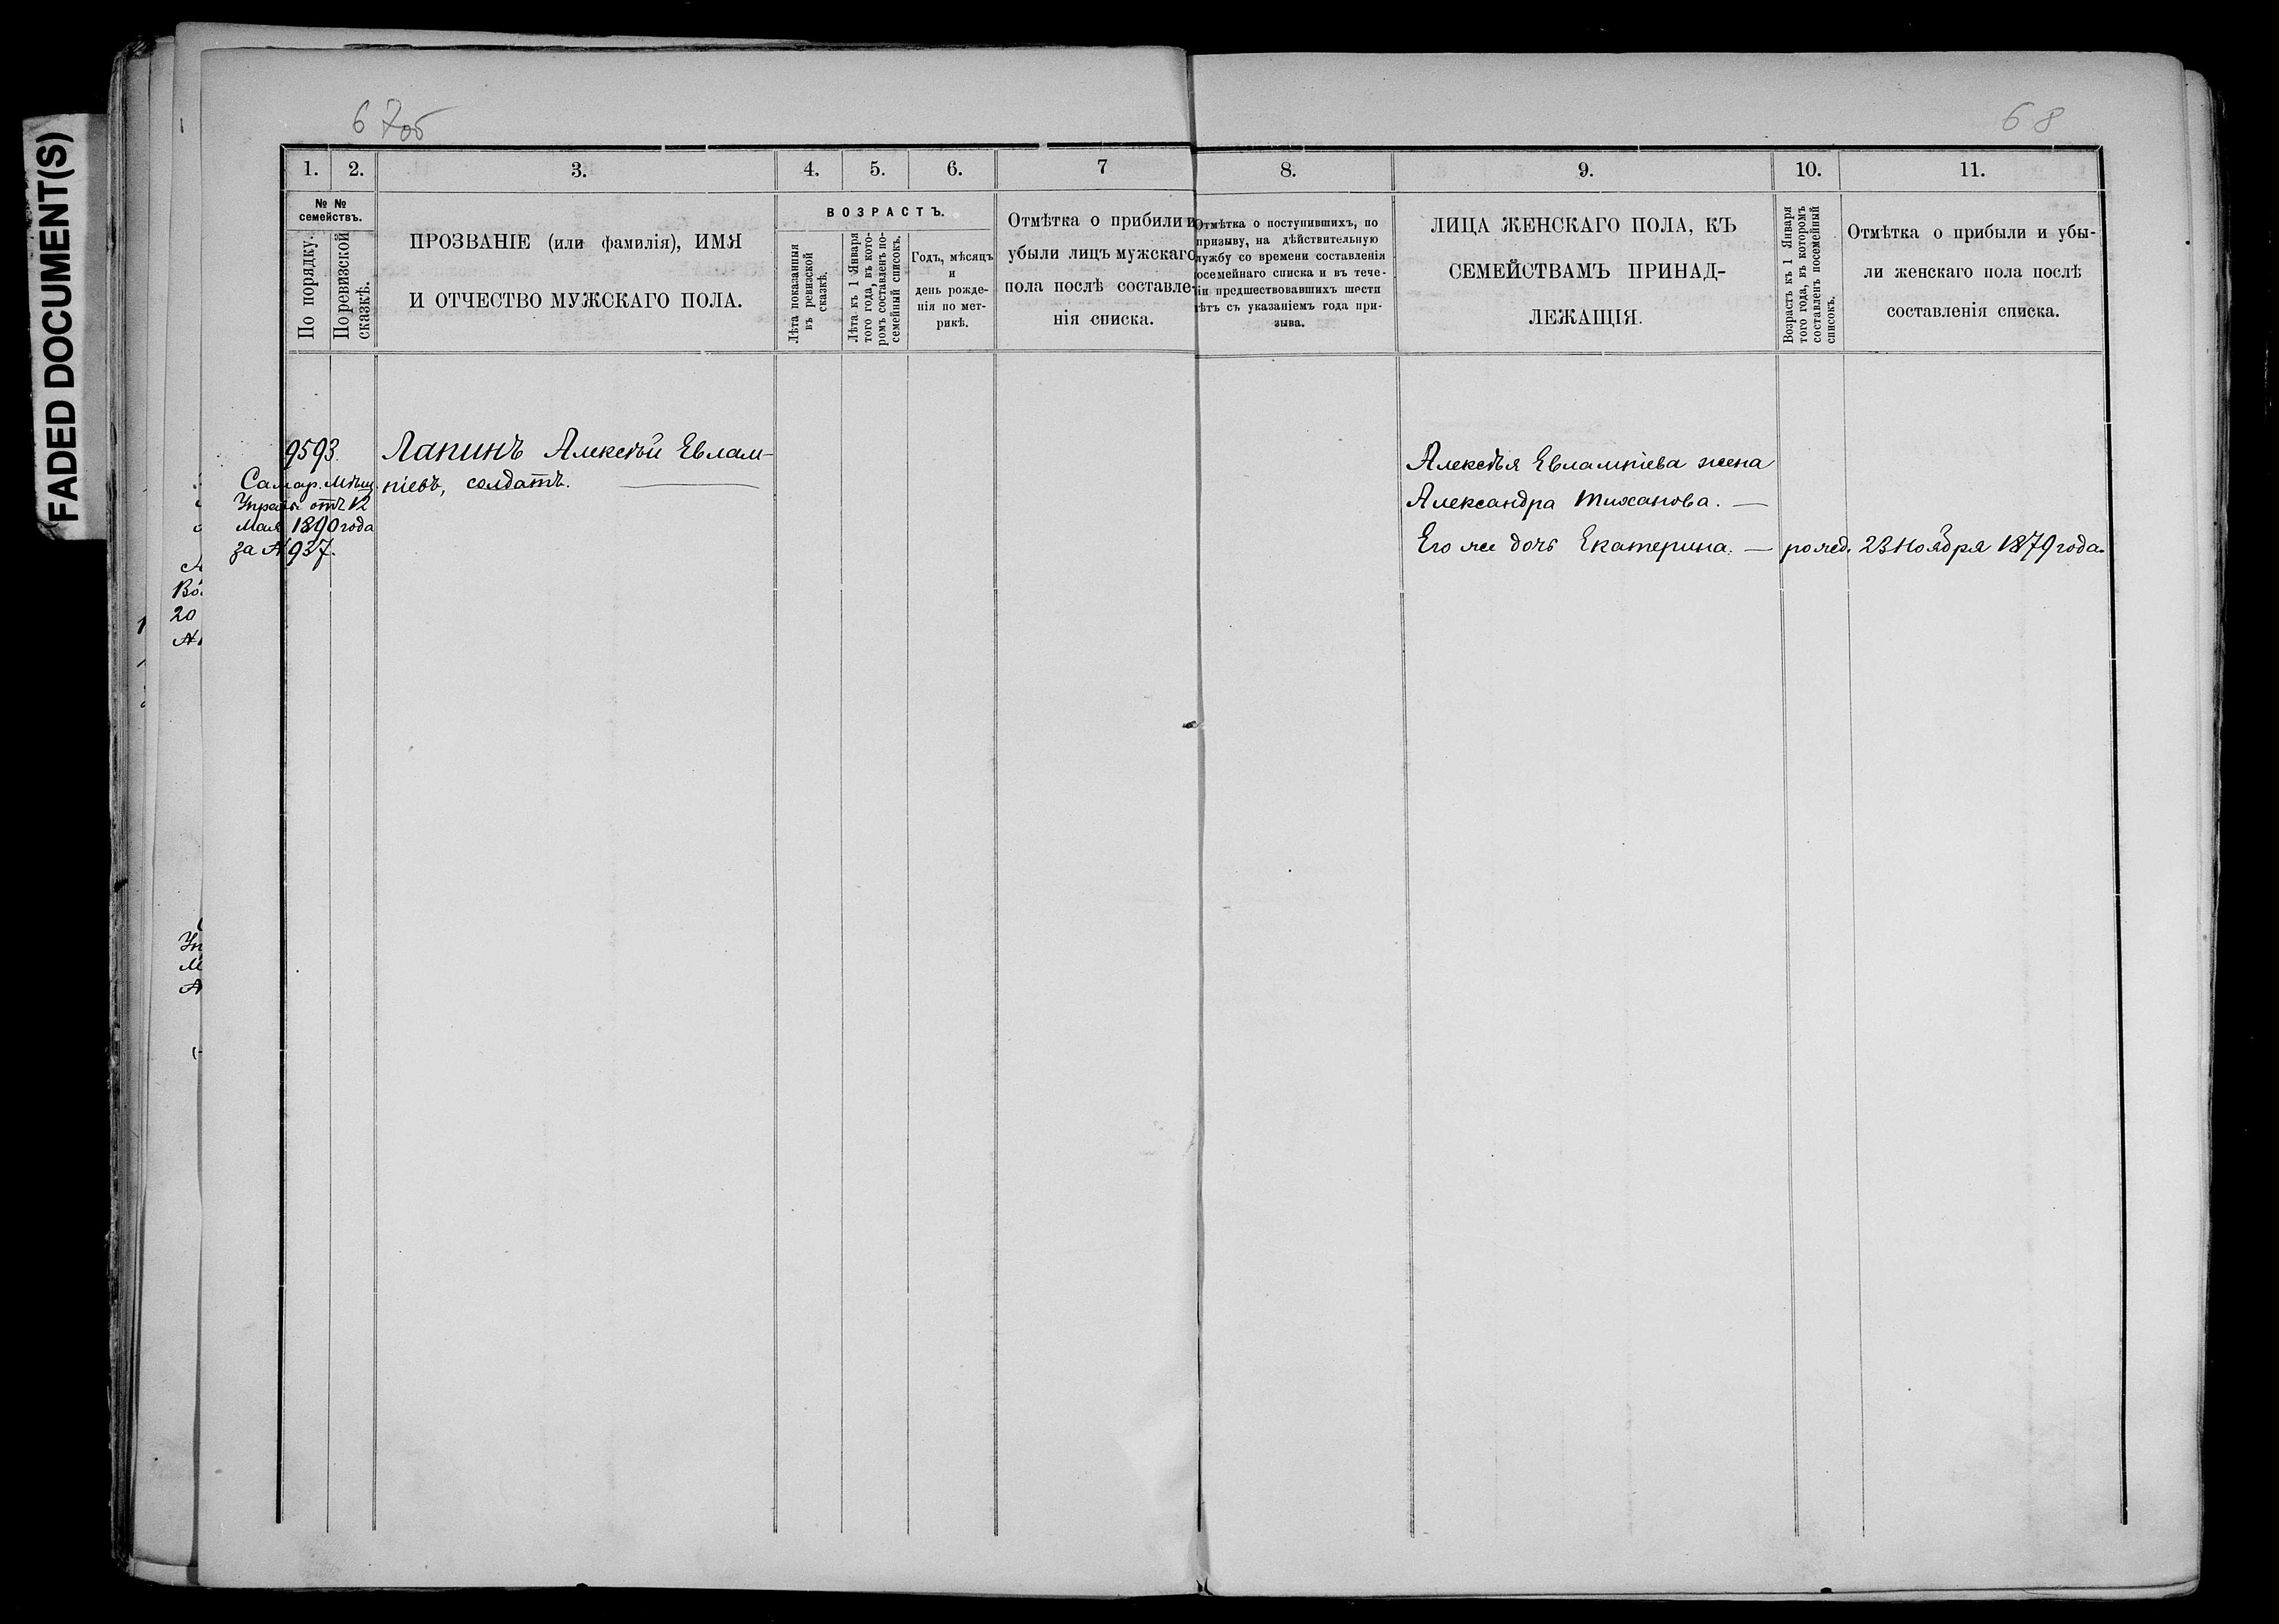 FADED DOCUMENT(S)
67об
68
1.
2.
3.
4.
5.
6.
7
8.
9.
10.
11.
№ №
семействъ.
По порядку.
По ревизской
сказкѣ.
ПРОЗВАНІЕ (или фамилія), ИМЯ
И ОТЧЕСТВО МУЖСКАГО ПОЛА.
ВОЗРАСТЪ.
Лѣта показанныя
въ ревизской
сказкѣ.
Лѣта къ 1 Января
того года, въ кото-
ромъ составленъ по-
семейный списокъ.
Годъ, мѣсяцъ
и
день рожде-
нія по мет-
рикѣ.
Отмѣтка о прибили и
убыли лицъ мужскаго
пола послѣ составле-
нія списка.
Отмѣтка о поступившихъ, по
призыву, на дѣйствительную
лужбу со времени составленія
осемейнаго списка и въ тече-
іи предшествовавшихъ шести
ѣтъ съ указаніемъ года при-
зыва.
ЛИЦА ЖЕНСКАГО ПОЛА, КЪ
СЕМЕЙСТВАМЪ ПРИНАД-
ЛЕЖАЩІЯ.
Возрастъ къ 1 Января
того года, въ которомъ
составленъ посемейный
списокъ.
Отмѣтка о прибыли и убы-
ли женскаго пола послѣ
составленія списка.
9593.
Самар. Мѣщ.
Управы отъ 12
Мая 1890 года
за № 937.
Лапинъ Алексѣй Евлам-
піевъ, солдатъ.
Алексѣя Евлампіева жена
Александра Тиханова. —
Его же дочь Екатерина. — рожд. 23 Ноября 1879 года.
Во
20
Уп
М